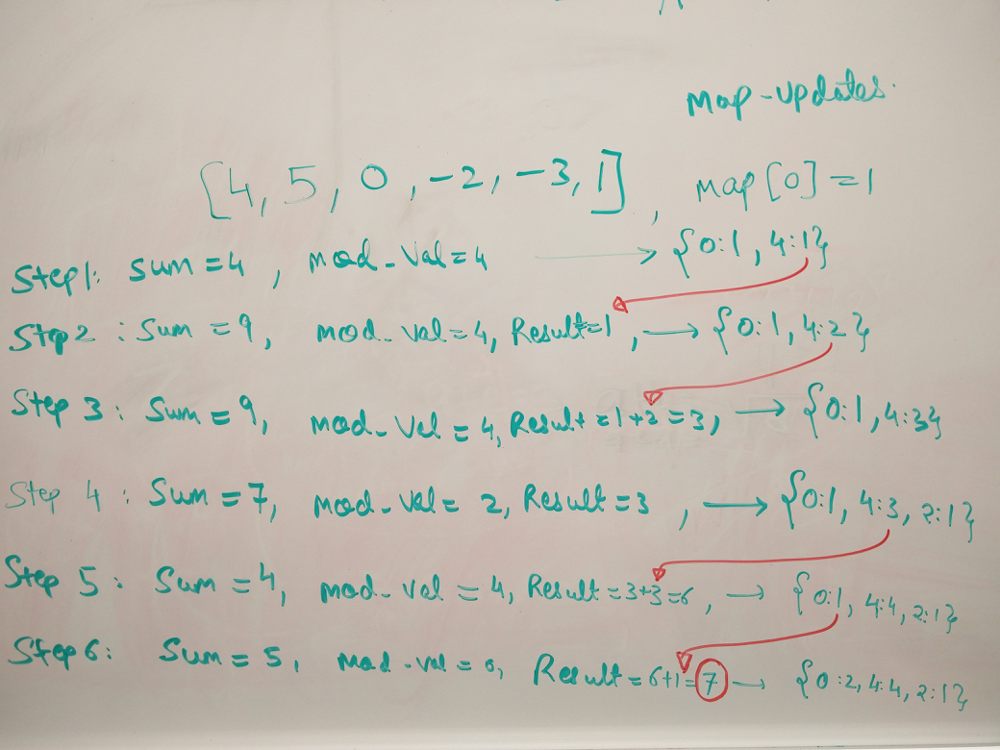 Map-updates.
[4, 5, 0, -2, -3, 1] , map[0] = 1
Step1: Sum = 4 , mod-Val = 4 → {0:1, 4:1}
Step2 : Sum = 9, mod-Val = 4, Result = 1 , → {0:1, 4:2}
Step 3 : Sum = 9, mod-Val = 4, Result = 1+2 = 3, → {0:1, 4:3}
Step 4 : Sum = 7, mod-Val = 2, Result = 3 , → {0:1, 4:3, 2:1}
Step 5 : Sum = 4, mod-Val = 4, Result = 3+3 = 6 , → {0:1, 4:4, 2:1}
Step6 : Sum = 5, mod-val = 0, Result = 6+1 = 7 → {0:2, 4:4, 2:1}